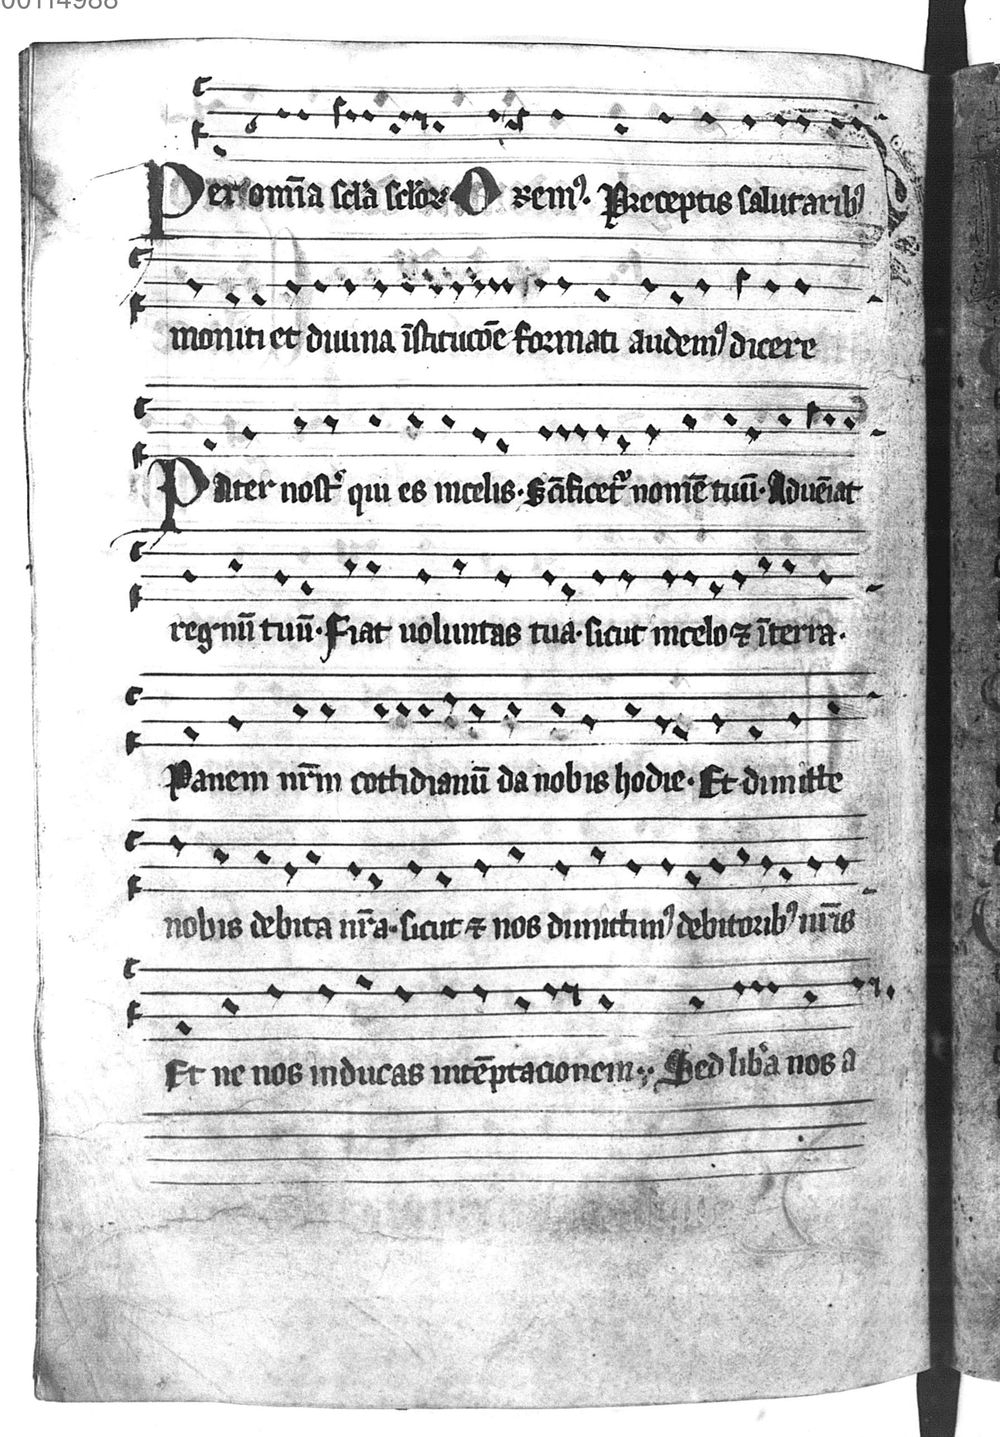 00114988
Per om̄ia scl̄a scl̄oꝝ. Oremꝰ. Preceptis salutaribꝰ
moniti et diuina īstitucōe formati audemꝰ dicere
Pater nost̉ qui es incelis. Sc̄ificet᷑ nomē tuū. Aduēiat
regnū tuū. Fiat uoluntas tua. sicut incelo ⁊ īterra.
Panem nr̄m cottidianū da nobis hodie. Et dimitte
nobis debita nr̄a. sicut ⁊ nos dimittimꝰ debitoribꝰ nr̄is
Et ne nos inducas intēptacionem. Sed lib̉a nos a